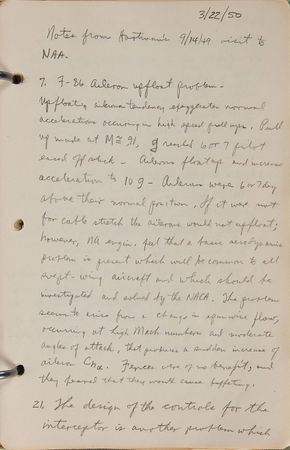 3/22/50
Notes from Hartman's 9/14/49 visit to
NAA.
7. F-86 Aileron upfloat problem.
Upfloating aileron tendency exaggerates normal
accelerations occurring in high speed pull ups. Pull
up made at M≅.91, g reached 6 or 7 pilot
eased off which - Ailerons float up and increase
acceleration to 10 g - Ailerons were 6 or 7 deg
above their normal position. If it were not
for cable stretch the ailerons would not upfloat;
however, NA engin. feel that a basic aerodynamic
problem is present which will be common to all
swept-wing aircraft and which should be
investigated and solved by the NACA. The problem
seems to arise from a change in spanwise flow,
occurring at high Mach numbers and moderate
angles of attack, that produces a sudden increase of
aileron Chα. Fences were of no benefit, and
they feared that they would cause buffeting.
21. The design of the controls for the
interceptor is another problem which